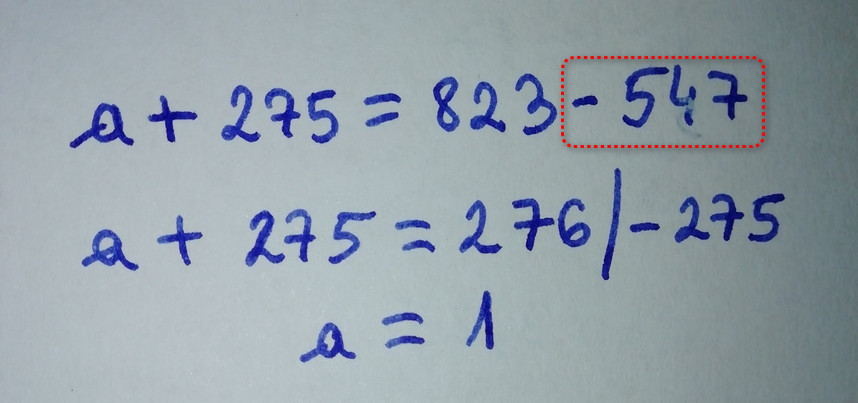 a + 275 = 823 - 547
a + 275 = 276 | - 275
a = 1